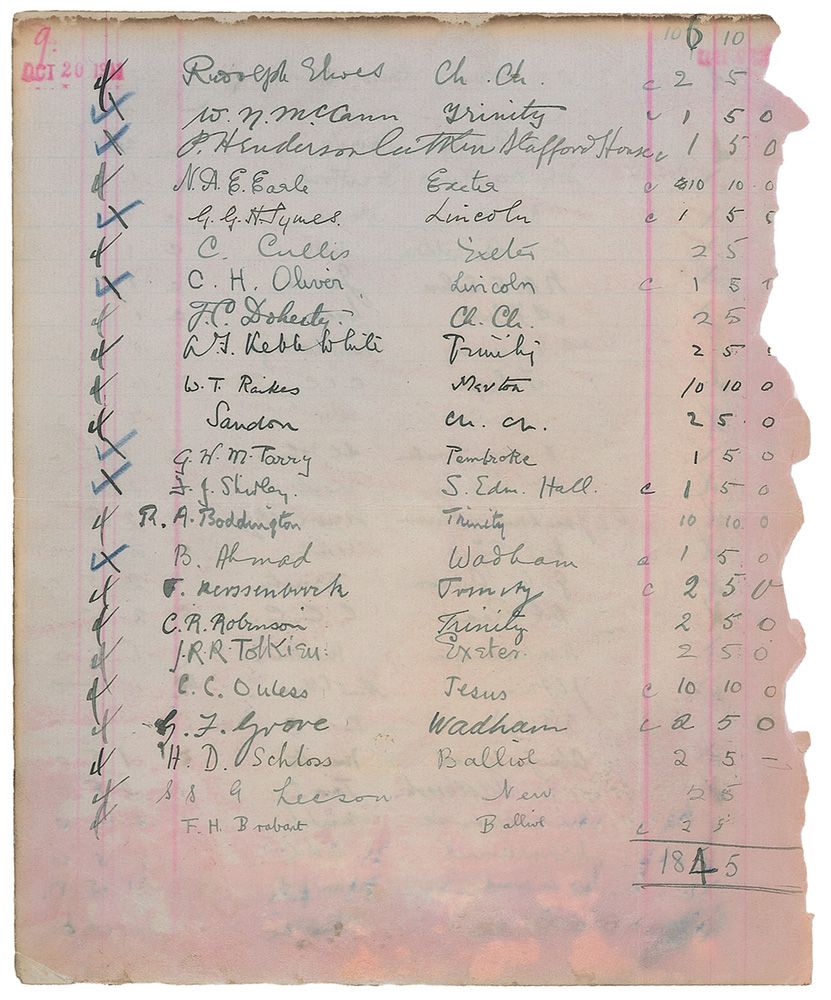 9.
106 10
OCT 20
Rudolph Elwes Ch. Ch. c 2 5
W. N. McCann Trinity c 1 5 0
P Henderson Stafford House c 1 5 0
N. A. E. Earle Exeter c 10 10 0
G. G. H. Symes. Lincoln c 1 5
C. Cullis Exeter 2 5
C. H. Oliver Lincoln c 1 5
J. C. Doherty. Ch. Ch. 2 5
Keble White Trinity 2 5
W. T. Raikes Merton 10 10 0
Sandon Ch. Ch. 2 5 0
G. W. M. Parry Pembroke 1 5 0
F. J. Shirley. S. Edm. Hall. c 1 5 0
R. A. Boddington Trinity 10 10 0
B. Ahmad Wadham 1 5 0
F. Kerssenbrock Trinity c 2 5 0
C. R. Robinson Trinity 2 5 0
J. R. R. Tolkien. Exeter. 2 5 0
C. C. Ouless Jesus c 10 10 0
G. F. Grove Wadham c 2 5 0
H. D. Schloss Balliol 2 5 –
S S G Leeson New 2 5
F. H. Brabant Balliol c 2 5
184 5